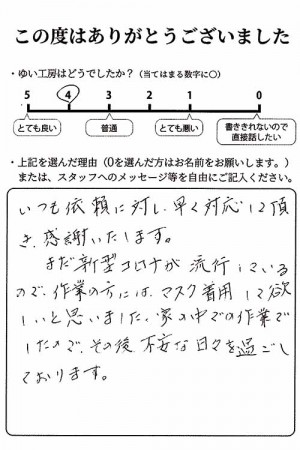 この度はありがとうございました
・ゆい工房はどうでしたか？（当てはまる数字に○）
5 4 3 2 1 0
とても良い 普通 とても悪い 書ききれないので直接話したい
・上記を選んだ理由（0を選んだ方はお名前をお願いします。）
または、スタッフへのメッセージ等を自由にご記入ください。
いつも依頼に対し、早く対応して頂
き、感謝いたします。
まだ新型コロナが流行している
ので、作業の方には、マスク着用して欲
しいと思いました。家の中での作業で
したので、その後 不安な日々を過ごし
ております。